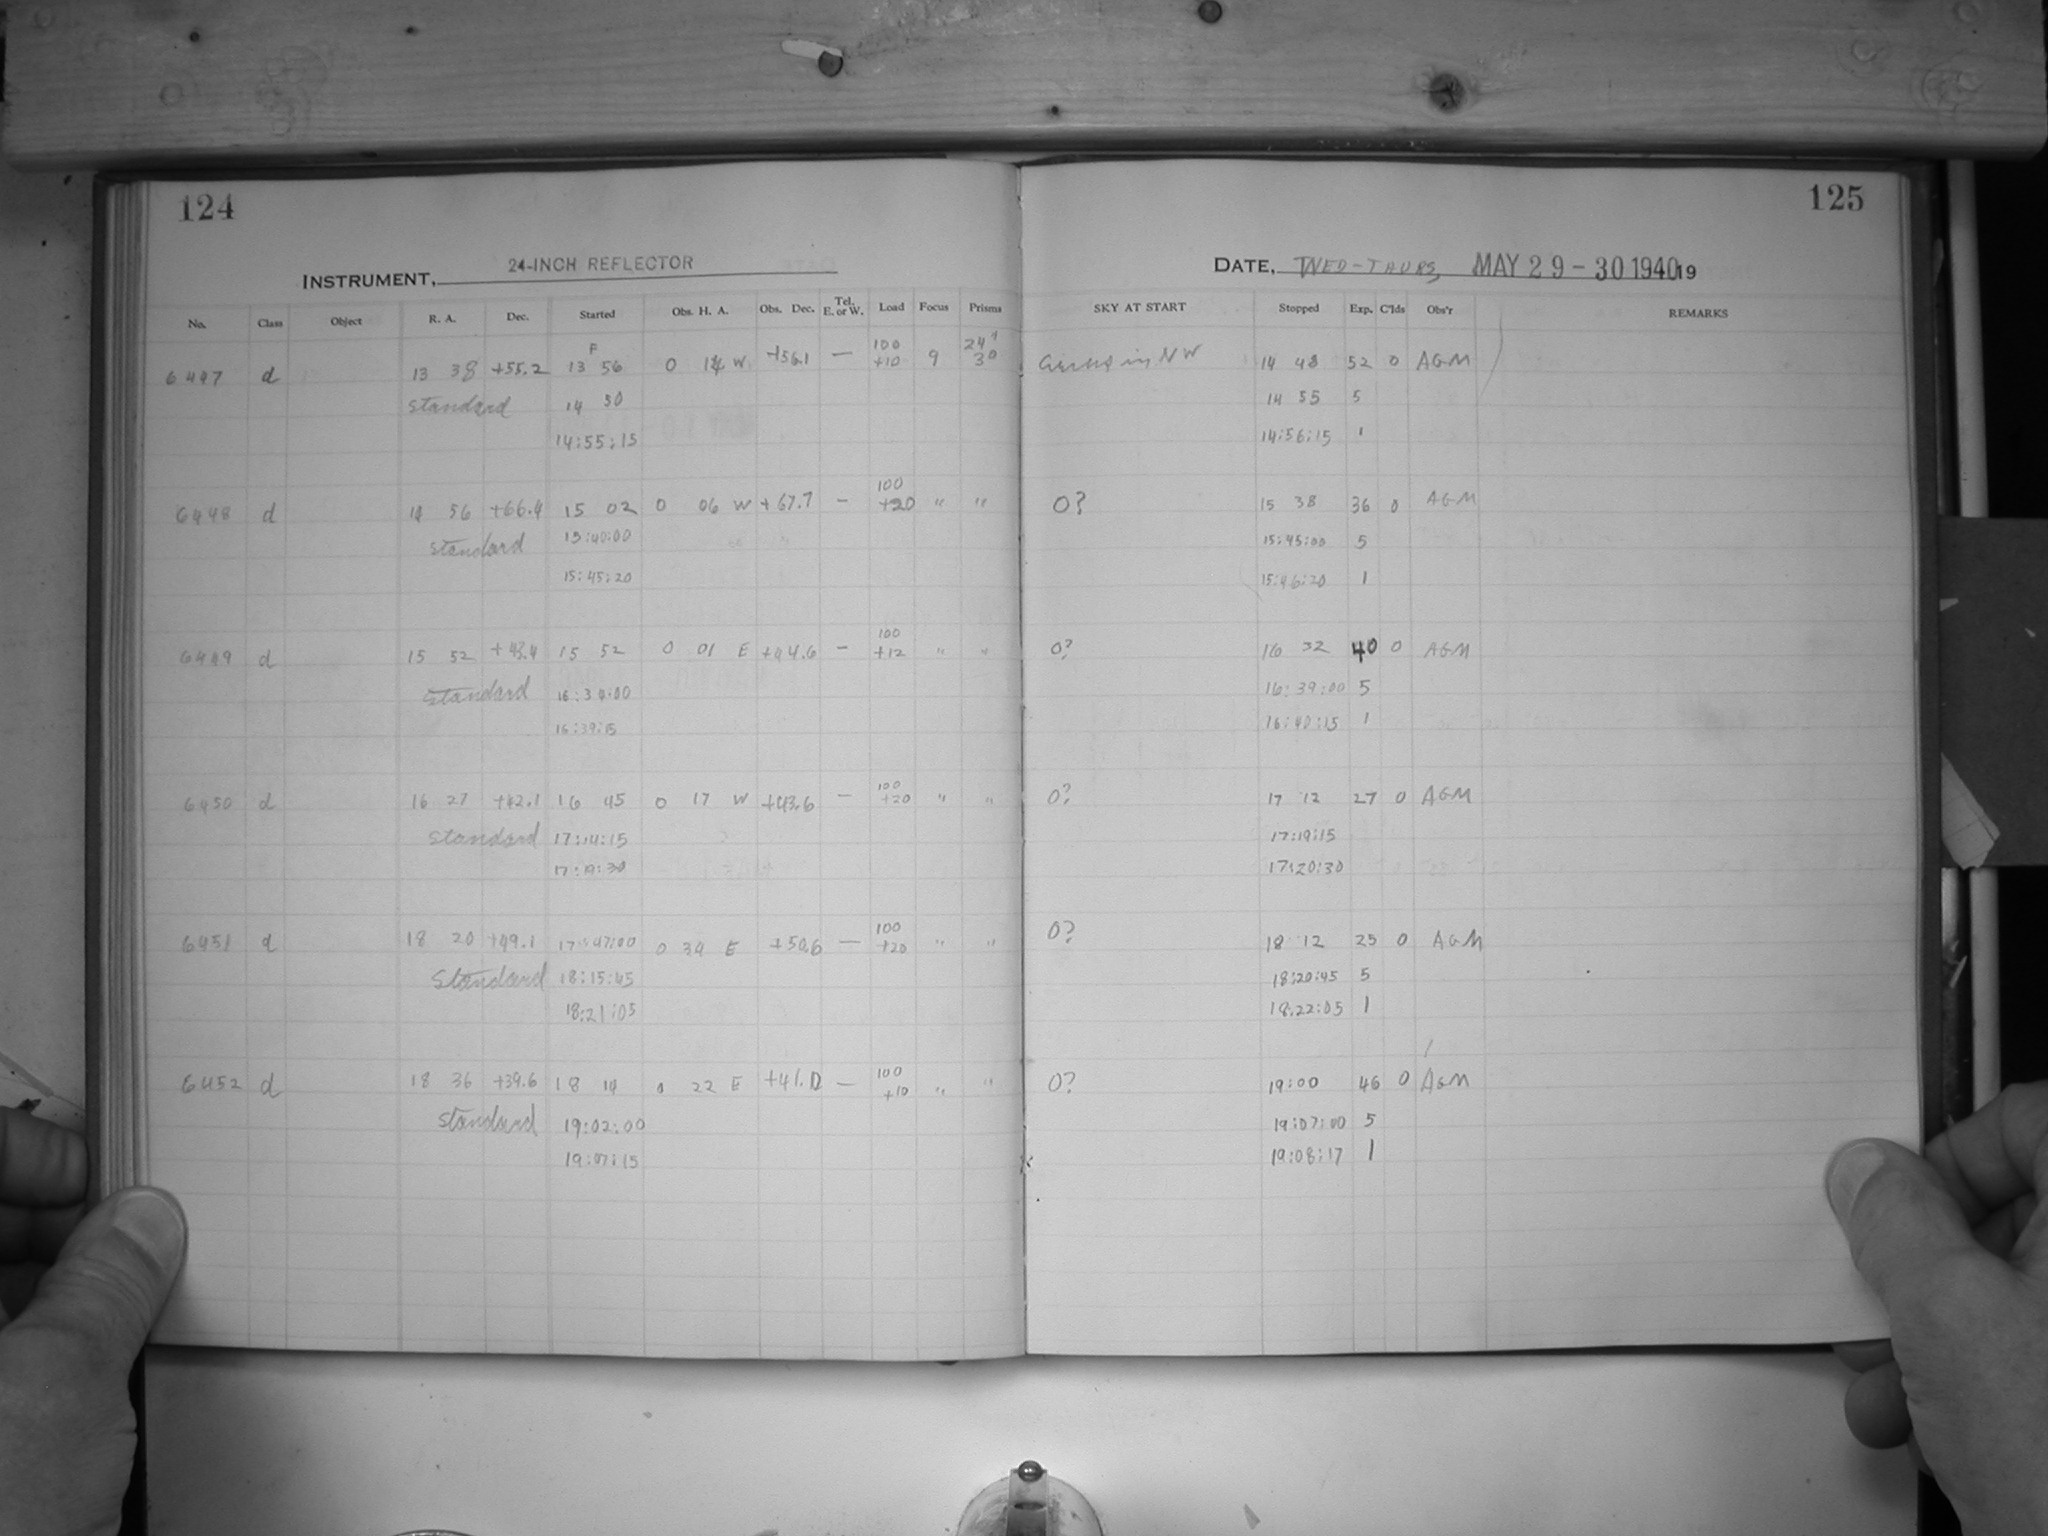 124
INSTRUMENT, 24-INCH REFLECTOR
No. Class Object R. A. Dec. Started Obs. H. A. Obs. Dec. Tel. E. or W. Load Focus Prisms
6447 d 13 38 +55.2 13 56 0 14 W +56.1 — 100 +10 9 24" 30
standard 14 50
14:55:15
6448 d 14 56 +66.4 15 02 0 06 W +67.7 — 100 +20 " "
standard 15:40:00
15:45:20
6449 d 15 52 +43.4 15 52 0 01 E +44.6 — 100 +12 " "
standard 16:34:00
16:39:15
6450 d 16 27 +42.1 16 45 0 17 W +43.6 — 100 +20 " "
standard 17:14:15
17:19:30
6451 d 18 20 +49.1 17:47:00 0 34 E +50.6 — 100 +20 " "
standard 18:15:45
18:21:05
6452 d 18 36 +39.6 18 14 0 22 E +41.0 — 100 +10 " "
standard 19:02:00
19:07:15
125
DATE, WED-THURS, MAY 29-30 1940 19
SKY AT START Stopped Exp. C'lds Obs'r REMARKS
in NW 14 48 52 0 AGM
14 55 5
14:56:15 1
0? 15 38 36 0 AGM
15:45:00 5
15:46:20 1
0? 16 32 40 0 AGM
16:39:00 5
16:40:15 1
0? 17 12 27 0 AGM
17:19:15
17:20:30
0? 18 12 25 0 AGM
18:20:45 5
18:22:05 1
0? 19:00 46 0 AGM
19:07:00 5
19:08:17 1